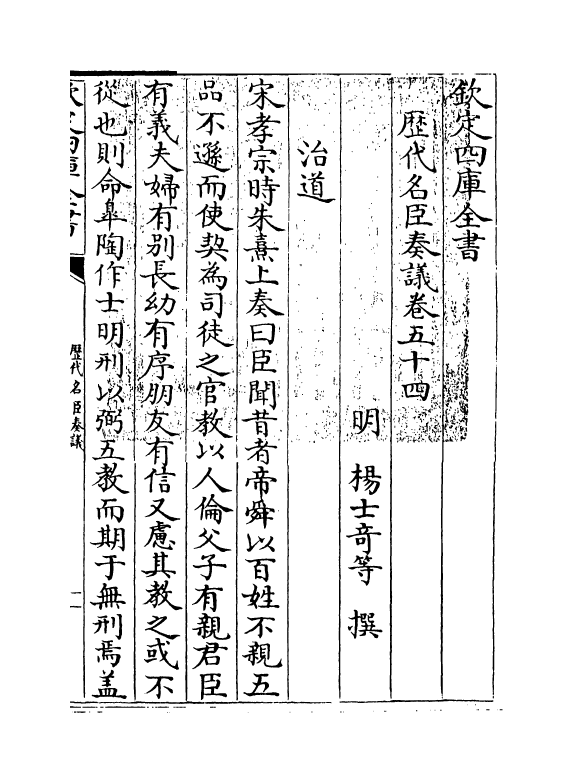 欽定四庫全書
歷代名臣奏議卷五十四
明 楊士奇等 撰
治道
宋孝宗時朱熹上奏曰臣聞昔者帝舜以百姓不親五
品不遜而使契為司徒之官教以人倫父子有親君臣
有義夫婦有別長幼有序朋友有信又慮其教之或不
從也則命臯陶作士明刑以弼五教而期于無刑焉盖
欽定四庫全書
歷代名臣奏議